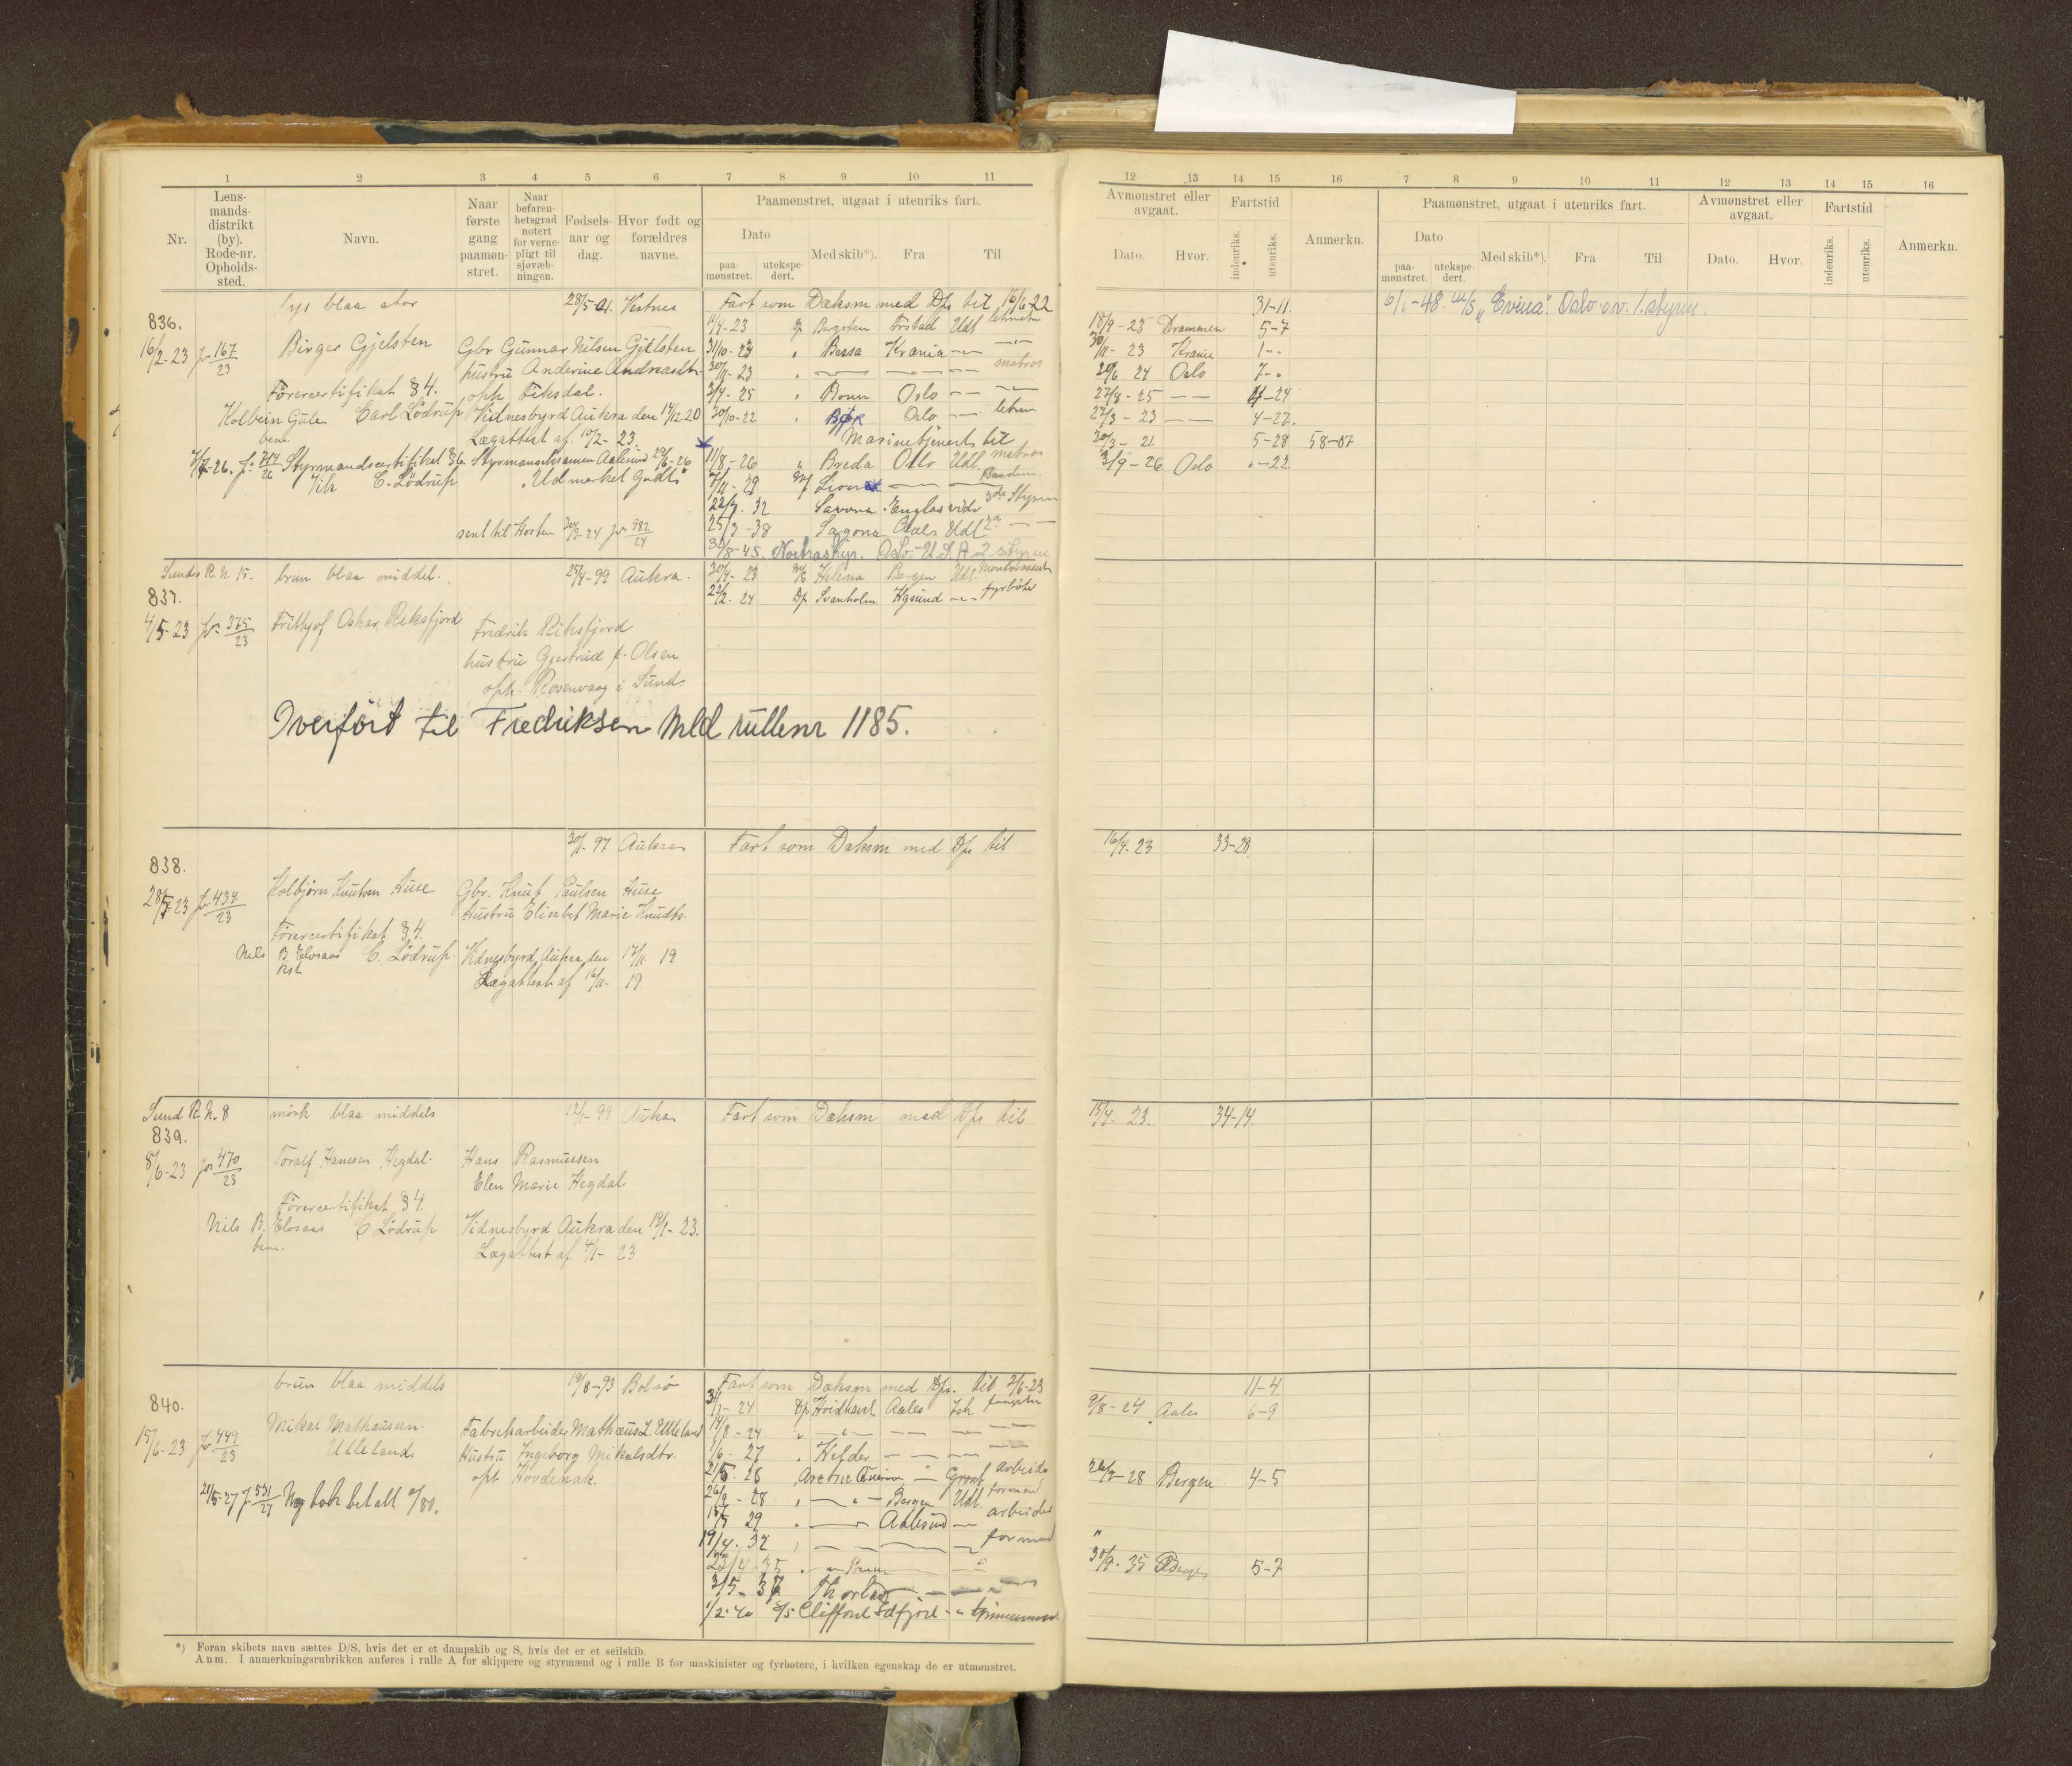 1 2 3 4 5 6 7 8 9 10 11
Nr.
Lens-
mands-
distrikt
(by).
Rode-nr.
Opholds-
sted.
Navn.
Naar
første
gang
paamøn-
stret.
Naar
befaren-
hetsgrad
notert
for verne-
pligt til
sjøvæb-
ningen.
Fødsels-
aar og
dag.
Hvor født og
forældres
navne.
Paamønstret, utgaat i utenriks fart.
Dato
paa-
mønstret.
utekspe-
dert.
Med skib*).
Fra
Til
12 13 14 15 16
Avmønstret eller
avgaat.
Dato.
Hvor.
Fartstid
indenriks.
utenriks.
Anmerkn.
7 8 9 10 11 12 13 14 15 16
Paamønstret, utgaat i utenriks fart.
Dato
paa-
mønstret.
utekspe-
dert.
Med skib*).
Fra
Til
Avmønstret eller
avgaat.
Dato.
Hvor.
Fartstid
indenriks.
utenriks.
Anmerkn.
lys blaa stor 28/5-01. Vestnes Fart som Dæksm med D/s til 16/6-22 31-11. 6/1-48. m/s "Evina". Oslo o.v. 1. styrm.
836. 11/4-23 Bergsten Udl letmatr 18/9-23 Drammen 5-7
16/2-23 Jr 167/23 Birger Gjelsten Gbr Gunnar Nilsen Gjelsten 31/10-23 " Bessa Krania 30/11-23 Krania 1-"
hustru Anderine Andreasdtr. 30/11-23 " matros 20/6 24 Oslo 7-"
Førercertifikat § 4. oph. Fiksdal. 3/4-25 " Bonn Oslo 27/8-25 4-24
Kolbein Gule Carl Lødrup Vidnesbyrd Aukra den 14/12 20 30/10-22 " Oslo letm 27/3-23 4-27.
bem. Lægattest af 10/2-23. Marinetjenest til 20/3-21 5-28 58-07
Jr. 714/26 Styrmandscertifikat § 6. Styrmandseksamen Aalesund 29/6-26 11/8-26 " Breda Oslo Udl matros 3/9-26 Oslo "-22.
C. Lødrup "Udmerket Godt" 29 Baadsm.
22/7. 32 Savona 3die Styrm
sent til Horten 20/3-24 Jr 982/24 25/3-38 Sagona Aales Udl 2n
31/8-45. Oslo-U.S.A. 2. styrm
Sunds R.N. 15. brun blaa middel. 25/4-99 Aukra. 30/4-23 M/s Helena Bergen Udl.
837. 22/2-24 D/s Svanholm fyrbøter
4/5-23 Jr 375/23 Frithjof Oskar Riksfjord Fredrik Riksfjord
hustru Gjertrud f. Olsen
oph. Rosenvaag i Sund.
Overført til Fredriksen Mld rullenr 1185.
838. 20/1-97 Aukra Fart som Dæksm med D/s til 16/4-23 33-28
28/5-23 Jr 434/23 Kolbjørn Knutsen Huse Gbr. Knut Paulsen Huse
Hustru Elisabet Marie Knudts.
Førercertifikat § 4.
Nils B. Elvsaas C. Lødrup Vidnesbyrd Aukra den 17/11 19
Lægattest af 16/11-19.
Sund R.N. 8 mørk blaa middels 12/1-99 Aukra Fart som Dæksm med D/s til 15/4-23. 34-14.
839.
8/6-23 Jr 470/23 Toralf Hanssen Hegdal. Hans Rasmussen
Elen Marie Hegdal.
Førercertifikat § 4.
Nils B. Elvsaas C Lødrup Vidnesbyrd Aukra den 19/1-23.
bem. Lægattest af 4/1-23
840. brun blaa middels 19/8-93 Bolsø Fart som Dæksm med D/s. til 2/6-23 11-4.
31/1-24 D/s Hvidhavet Aales Ish fangstm 9/8-24 Aales 6-9
Mikal Mathæussen 14/8-24
15/6-23 Jr 449/23 Ulleland. Fabrikarbeider Mathæus L. Ulleland 1/6-27 " Hefder
Hustru Ingeborg Mikalsdtr. 21/5-28 Arctic Queen Grønl arbeider 26/9-28 Bergen 4-5
oph Hovdenak. 26/9-28 " Bergen Udl. formand
21/5-27 J. 531/27 Ny bok betalt 29 " Aalesund arbeider
19/4. 32 formand
23/4-35 30/9-35 Bergen 5-7
2/5-37 Thorland
1/2-40 Clifford Sdfjord
*) Foran skibets navn sættes D/S, hvis det er et dampskib og S, hvis det er et seilskib.
Anm. I anmerkningsrubrikken anføres i rulle A for skippere og styrmænd og i rulle B for maskinister og fyrbøtere, i hvilken egenskap de er utmønstret.